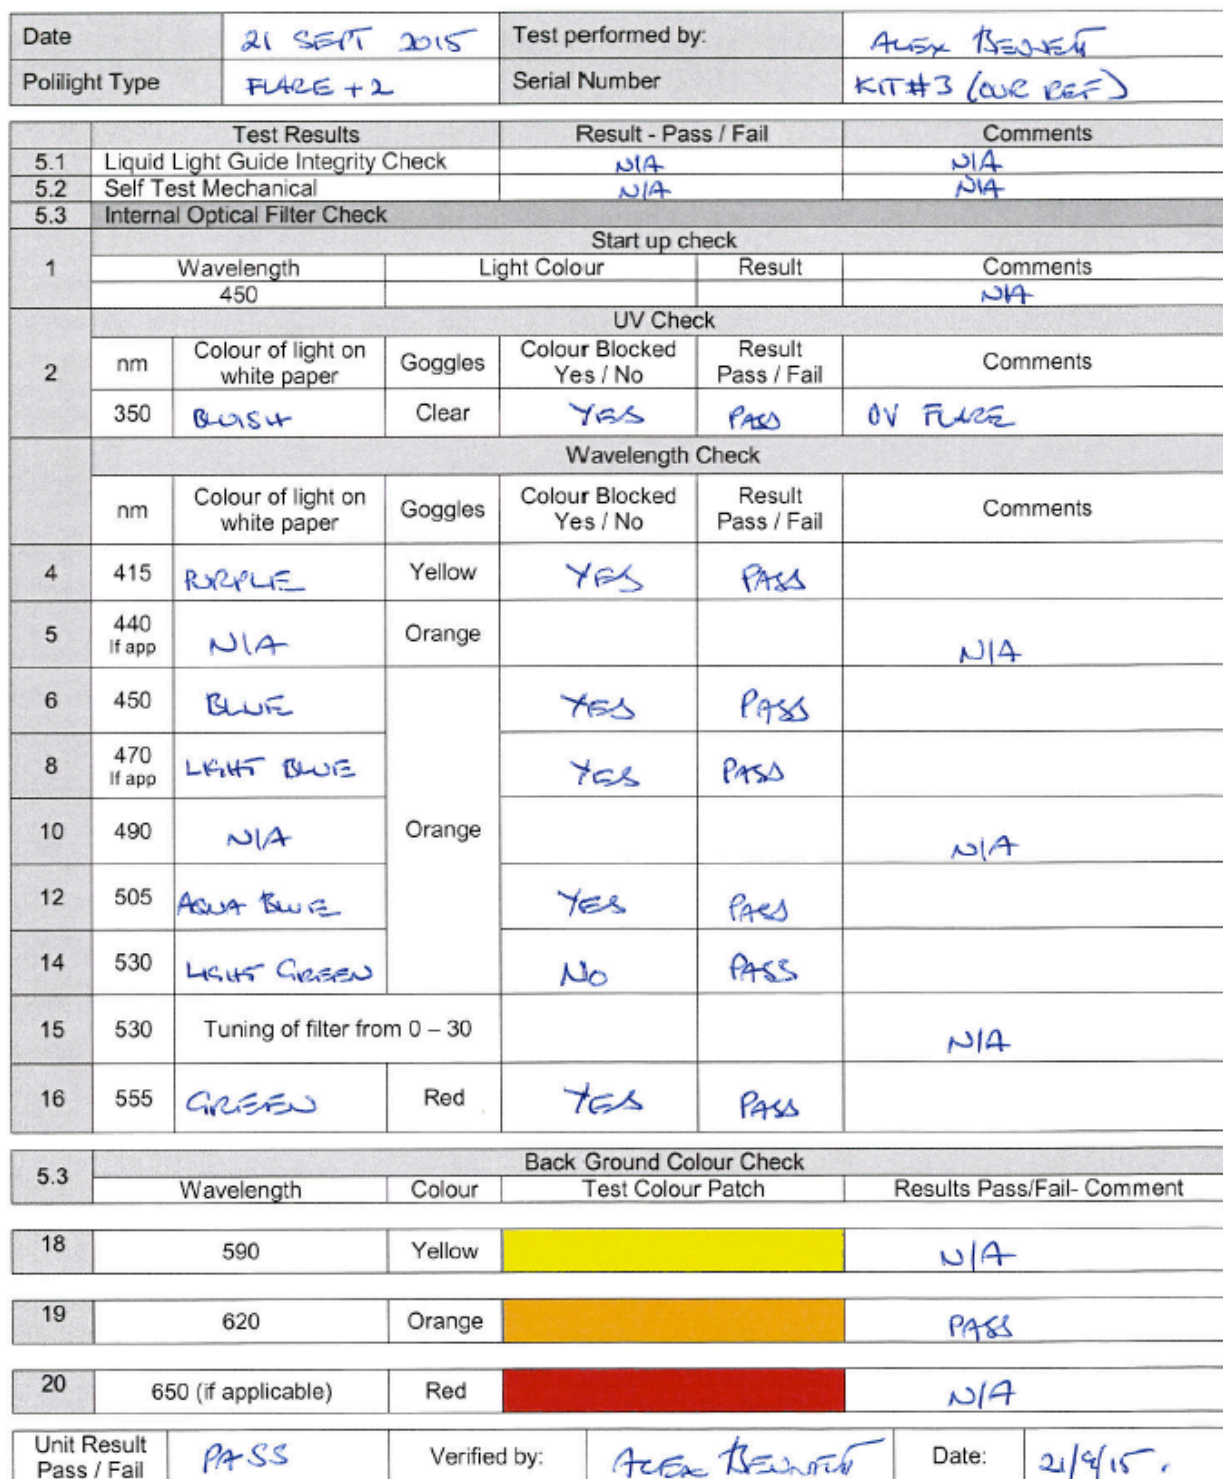 Date 21 SEPT 2015 Test performed by: ALEX BENNETT
Polilight Type FLARE +2 Serial Number KIT#3 (OUR REF)
Test Results Result - Pass / Fail Comments
5.1 Liquid Light Guide Integrity Check N/A N/A
5.2 Self Test Mechanical N/A N/A
5.3 Internal Optical Filter Check
Start up check
1 Wavelength Light Colour Result Comments
450 N/A
UV Check
2 nm Colour of light on white paper Goggles Colour Blocked Yes / No Result Pass / Fail Comments
350 BLUISH Clear YES PASS UV FLARE
Wavelength Check
nm Colour of light on white paper Goggles Colour Blocked Yes / No Result Pass / Fail Comments
4 415 PURPLE Yellow YES PASS
5 440 If app N/A Orange N/A
6 450 BLUE YES PASS
8 470 If app LIGHT BLUE YES PASS
10 490 N/A Orange N/A
12 505 AQUA BLUE YES PASS
14 530 LIGHT GREEN NO PASS
15 530 Tuning of filter from 0 – 30 N/A
16 555 GREEN Red YES PASS
5.3 Back Ground Colour Check
Wavelength Colour Test Colour Patch Results Pass/Fail- Comment
18 590 Yellow N/A
19 620 Orange PASS
20 650 (if applicable) Red N/A
Unit Result Pass / Fail PASS Verified by: ALEX BENNETT Date: 21/9/15.